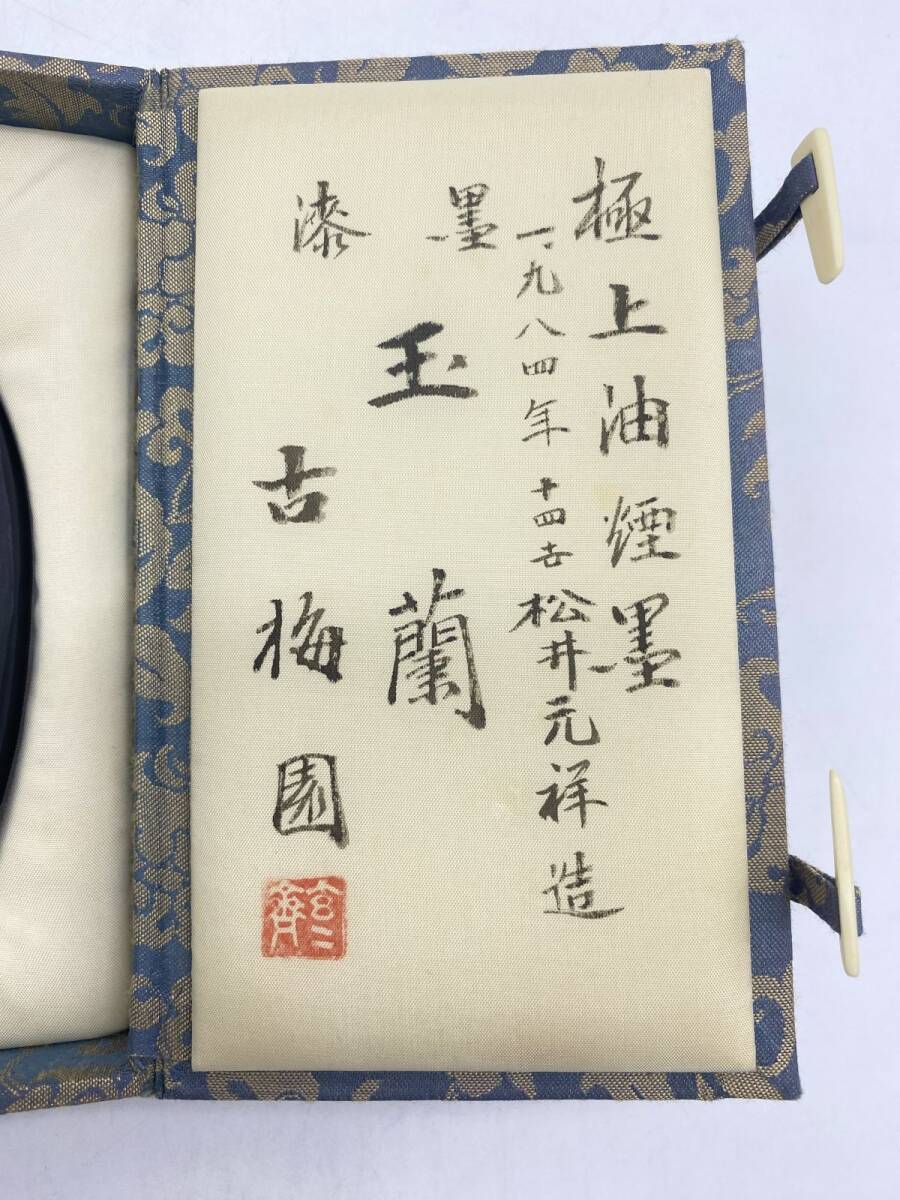 極上油煙墨
一九八四年 十四世 松井元祥造
漆墨
玉蘭
古梅園
玄々齊